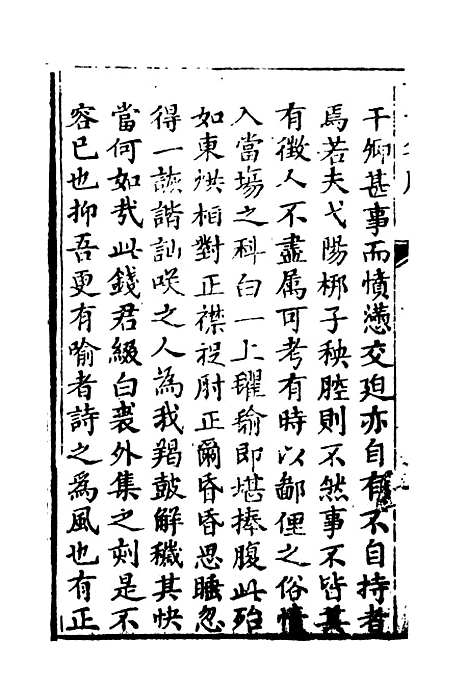 干卿甚事而憤懣交廹亦自有不自持者
焉若夫弋陽梆子秧腔則不然事不皆其
有徴人不盡属可考有時以鄙俚之俗情
入當塲之科白一上氍毹即堪捧腹此殆
如東烘相對正襟捉肘正爾昏昏思睡忽
得一詼諧訕咲之人為我羯鼓解穢其快
當何如㢤此錢君綴白裘外集之刻是不
容已也抑吾更有喻者詩之為風也有正